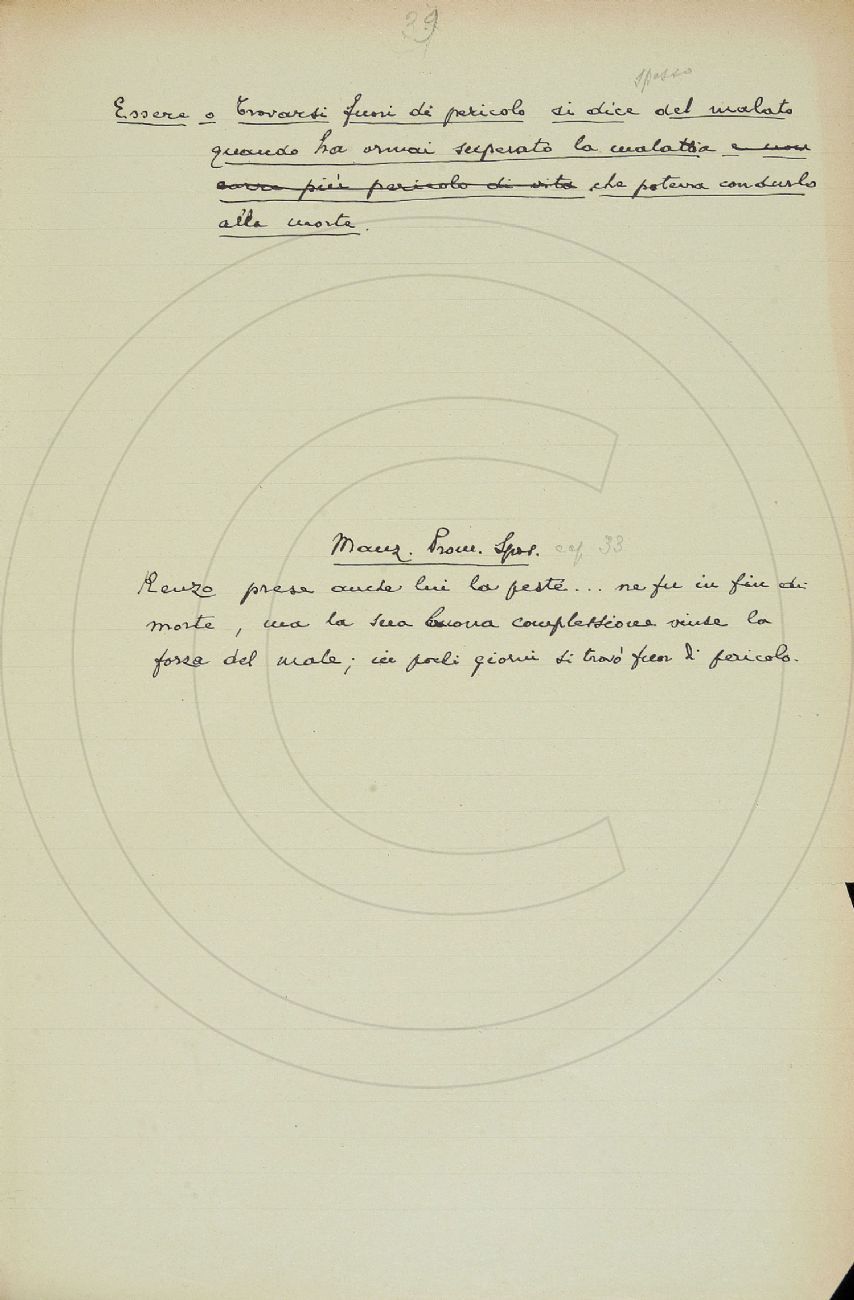 39
spesso
Essere o trovarsi fuori di pericolo si dice del malato
quando ha ormai superato la malattia e non
corre più pericolo di vita che poteva condurlo
alla morte.
Manz. Prom. Spos. cap 33
Renzo prese anche lui la peste... ne fu in fin di
morte, ma la sua buona complessione vinse la
forza del male; in pochi giorni si trovò fuor di pericolo.